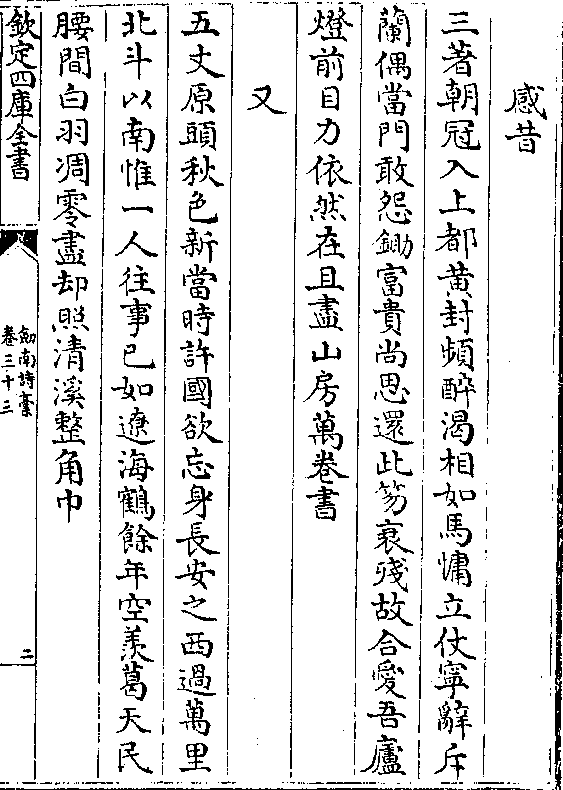 感昔
三著朝冠入上都黄封頻醉渴相如馬慵立仗寧辭斥
蘭偶當門敢怨鋤富貴尚思還此笏衰殘故合愛吾廬
燈前目力依然在且盡山房萬卷書
又
五丈原頭秋色新當時許國欲忘身長安之西過萬里
北斗以南惟一人往事已如遼海鶴餘年空羨葛天民
腰間白羽凋零盡却照清溪整角巾
欽定四庫全書
劍南詩藁
卷三十三
二